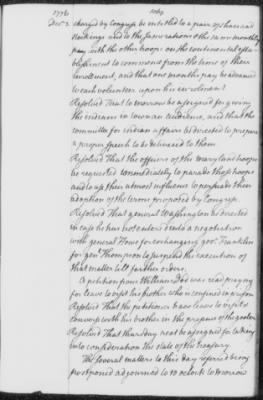 1776
Decr 2. charged by Congress be entitled to a pair of shoes and
stockings and to the same rations & the same monthly
pay with the other troops on the continental esta
blishment to commence from the time of their
enrolment, and that one months pay be advanced
to each volunteer upon his enrolment
Resolved That to morrow be assigned for giving
the indians in town an audience, and that the
committee for indian affairs be directed to prepare
a proper speech to be delivered to them
Resolved That the officers of the maryland troops
be requested immediately to parade their troops
and use their utmost influence to persuade their
adoption of the terms proposed by Congress.
Resolved That general Washington be directed
in case he has not entered into a negotiation
with general Howe for exchanging govr. Franklin
for genl. Thompson to suspend the execution of
that matter till farther orders.
A petition from William Dod was read praying
for leave to visit his brother who is confined in prison
Resolved That the petitioner have leave to visit &
converse with his brother in the presence of the goaler
Resolved That thursday next be assigned for taking
into consideration the state of the treasury
The several matters to this day referred being
postponed adjourned to 10 oClock to morrow